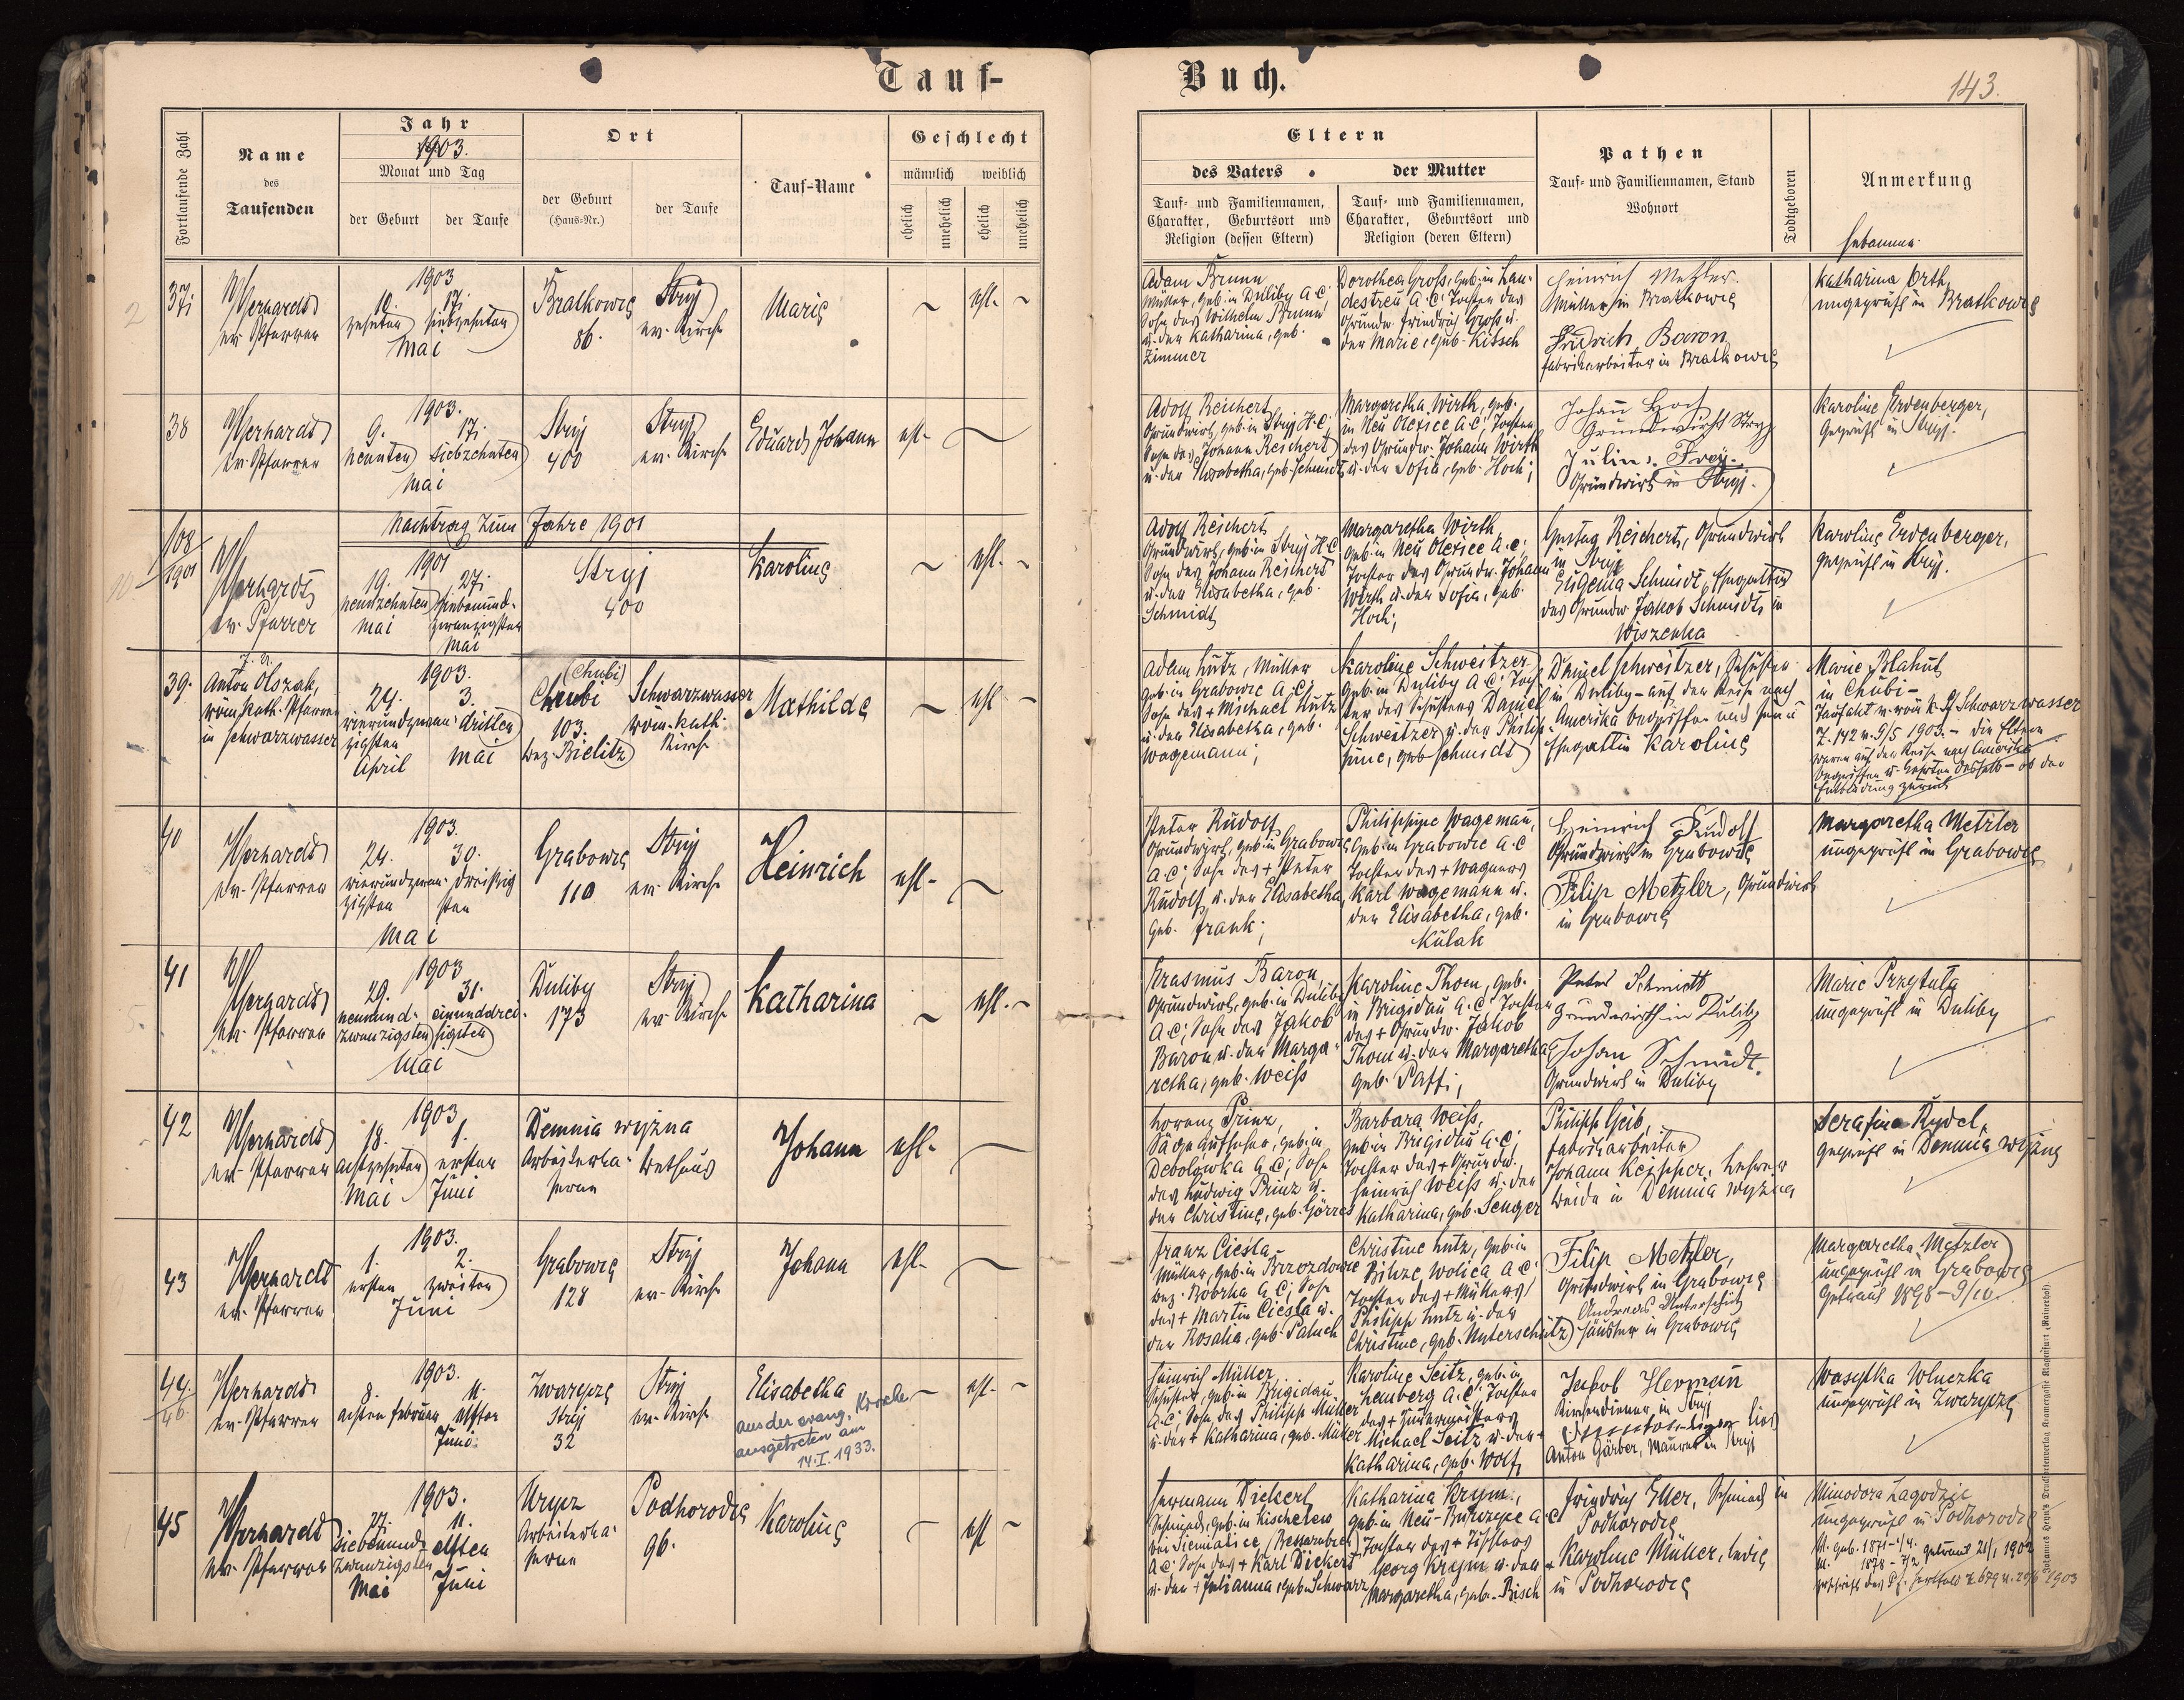 Tauf-
Buch.
143.
Fortlaufende Zahl
Name
des
Taufenden
Jahr
1903.
Monat und Tag
der Geburt
der Taufe
Ort
der Geburt
(Haus-Nr.)
der Taufe
Tauf-Name
Geschlecht
männlich
weiblich
ehelich
unehelich
ehelich
unehelich
Eltern
des Vaters
der Mutter
Tauf- und Familiennamen,
Charakter, Geburtsort und
Religion (dessen Eltern)
Tauf- und Familiennamen,
Charakter, Geburtsort und
Religion (deren Eltern)
Pathen
Tauf- und Familiennamen, Stand
Wohnort
Todtgeboren
Anmerkung
Hebamme
37
ev. Pfarrer
1903
10. 17.
zehnten siebzehnten
Mai
Bratkowce
86.
Stryj
ev. Kirche
Marie
ehl.
Adam Brunn
Müller, geb. in Duliby A.C.
Sohn des Wilhelm Brunn
u. der Katharina, geb.
Zimmer
Dorothea Groß, geb. in Lan-
destreu A.C. Tochter des
Grundw. Friedrich Groß u.
der Marie, geb. Kitsch
Heinrich Metzler.
Müller in Bratkowce
Fridrich Baron
Fabriksarbeiter in Bratkowce
Katharina Orth
ungeprüft in Bratkowce
38
ev. Pfarrer
1903.
9. 17.
neunten siebzehnten
Mai
Stryj
400
Stryj
ev. Kirche
Eduard Johann
ehl.
Adolf Reichert
Grundwirt, geb. in Stryj H.C.
Sohn des Johann Reichert
u. der Elisabetha, geb. Schmidt
Margaretha Wirth, geb.
in Neu Olexice A.C. Tochter
des Grundw. Johann Wirth
u. der Sofia, geb. Hoch;
Johann Hoch
Grundwirth Stryj
Julius Frey.
Grundwirt in Stryj.
Karoline Erdenberger,
geprüft in Stryj.
Nachtrag zum Jahre 1901
108
1901
ev. Pfarrer
1901
19. 27.
neunzehnten siebenund-
Mai zwanzigsten
Mai
Stryj
400
Karoline
ehl.
Adolf Reichert
Grundwirt, geb. in Stryj H.C.
Sohn des Johann Reichert
u. der Elisabetha, geb.
Schmidt
Margaretha Wirth
geb. in Neu Olexice A.C.
Tochter des Grundw. Johann
Wirth u. der Sofia, geb.
Hoch;
Gustav Reichert, Grundwirt
in Stryj
Eugenia Schmidt, Ehegattin
des Grundw. Jakob Schmidt in
Wiszenka
Karoline Erdenberger,
geprüft in Stryj.
39.
Anton Olszak,
röm. kath. Pfarrer
in Schwarzwasser
1903.
24. 3.
vierundzwan- dritten
zigsten
April Mai
(Chubi)
Chubi
103.
Bez. Bielitz
Schwarzwasser
röm. kath.
Kirche
Mathilde
ehl
Adam Lutz, Müller
geb. in Grabowce A.C.
Sohn des + Michael Lutz
u. der Elisabetha, geb.
Wagemann;
Karoline Schweitzer
geb. in Duliby A.C. Toch-
ter des Schusters Daniel
Schweitzer u. der Philip-
pine, geb. Schmidt
Daniel Schweitzer, Schuster
in Duliby - auf der Reise nach
Amerika begriffen und seine
Ehegattin Karoline
Marie Blahut
in Chubi -
Taufakt v. röm. k. Pf. Schwarzwasser
Z. 142 v. 9/5 1903. - Die Eltern
waren auf der Reise nach Amerika
begriffen u. kehrten deshalb - ob der
Entbindung zurück
40
ev. Pfarrer
1903.
24. 30.
vierundzwan- dreißig
zigsten sten
Mai
Grabowce
110
Stryj
ev. Kirche
Heinrich
ehl.
Peter Rudolf
Grundwirt, geb. in Grabowce
A.C.; Sohn des + Peter
Rudolf u. der Elisabetha,
geb. Frank;
Philippine Wagemann,
geb. in Grabowce A.C
Tochter des + Wagners
Karl Wagemann u.
der Elisabetha, geb.
Kulak
Heinrich Rudolf
Grundwirt in Grabowce
Filip Metzler, Grundwirt
in Grabowce
Margaretha Metzler
ungeprüft in Grabowce
41
ev. Pfarrer
1903
29. 31.
neunund- einunddrei-
zwanzigsten ßigsten
Mai
Duliby
173
Stryj
ev. Kirche
Katharina
ehl.
Erasmus Baron,
Grundwirt, geb. in Duliby
A.C; Sohn des Jakob
Baron u. der Marga-
retha, geb. Weiss
Karoline Thom, geb.
in Brigidau A.C. Tochter
des + Grundw. Jakob
Thom u. der Margaretha
geb. Paffi;
Peter Schmidt
Grundwirth in Duliby
Johann Schmidt.
Grundwirt in Duliby
Marie Przytula
ungeprüft in Duliby
42
ev. Pfarrer
1903
18. 1.
achtzehnten ersten
Mai Juni
Demnia wyżna
Arbeiterka-
serne
Bethaus
Johann
ehl.
Lorenz Prinz,
geb. in
Debolowka A.C; Sohn
des Ludwig Prinz u.
der Christine, geb. Görres
Barbara Weiß,
geb. in Brigidau A.C;
Tochter des + Grundw.
Heinrich Weiß u. der
Katharina, geb. Senger
Philipp Geib,
Fabriksarbeiter
Johann Keipper, Lehrer
beide in Demnia wyżna
Serafina Rydel,
geprüft in Demnia wyżna
43
ev. Pfarrer
1903.
1. 2.
ersten zweiten
Juni
Grabowce
128
Stryj
ev. Kirche
Johann
ehl.
Franz Ciesla
Müller, geb. in Brzozdowce
Bez. Bobrka A.C; Sohn
des + Martin Ciesla u.
der Rosalia, geb. Paluch
Christine Lutz, geb. in
Bilcze Wolica A.C.
Tochter des + Müllers
Philipp Lutz u. der
Christine, geb. Unterschütz
Filip Metzler,
Grundwirt in Grabowce
Andreas Unterschütz
Häusler in Grabowce
Margaretha Metzler
ungeprüft in Grabowce
Getraut 1898 - 9/10
44.
46.
ev. Pfarrer
1903.
8. 11.
achten Februar elften
Juni
Zwarycze
Stryj
32
Stryj
ev. Kirche
Elisabetha
aus der evang. Kirche
ausgetreten am
14.I.1933.
ehl.
Heinrich Müller
Schuster, geb. in Brigidau
A.C; Sohn des Philipp Müller
u. der + Katharina, geb. Müller
Karoline Seitz, geb. in
Lemberg A.C. Tochter
des + Zimmermeisters
Michael Seitz u. der +
Katharina, geb. Wolf,
Jakob Herman
Kirchendiener in Stryj
Anton Gärber, Maurer in Stryj
Wasylka Wluczka
ungeprüft in Zwarycze
45
ev. Pfarrer
1903.
27. 11.
siebenund- elften
zwanzigsten
Mai Juni
Urycz
Arbeiterka-
serne
Podhorodce
96.
Karoline
ehl
Hermann Dickert
Schmied, geb. in Kischelew
A.C. Sohn des + Karl Dickert
u. der + Julianna, geb. Schwarz
Katharina Krym,
geb. in Neu-Burczyce A.C
Tochter des + Tischlers
Georg Krym u. der +
Margaretha, geb. Risch
Friedrich Eller, Schmied in
Podhorodce
Karoline Müller, ledig
in Podhorodce
Minodora Lagodzic
ungeprüft in Podhorodce